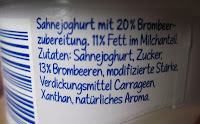 Sahnejoghurt mit 20% Brombeer-
zubereitung. 11% Fett im Milchanteil.
Zutaten: Sahnejoghurt, Zucker,
13% Brombeeren, modifizierte Stärke,
Verdickungsmittel Carrageen,
Xanthan, natürliches Aroma.